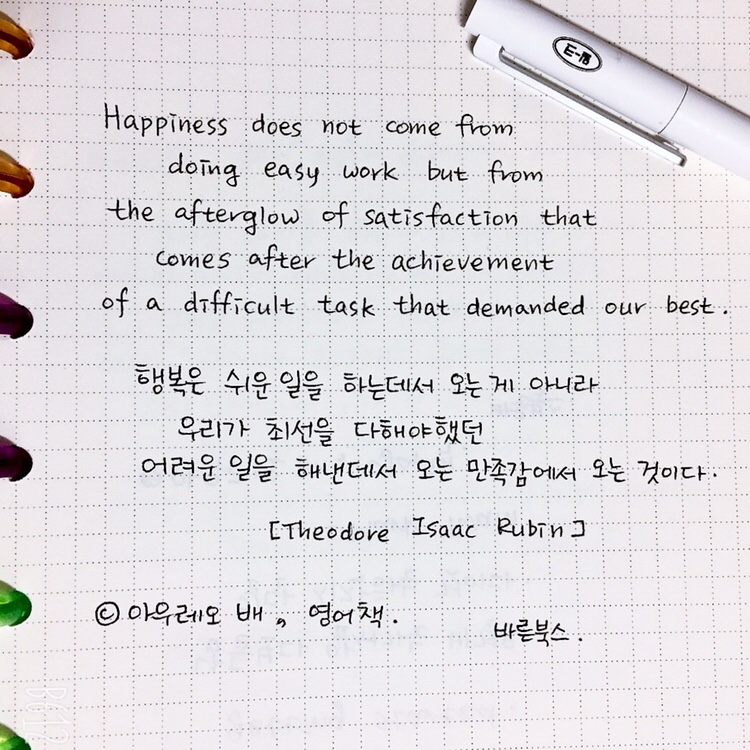 Happiness does not come from
doing easy work but from
the afterglow of satisfaction that
comes after the achievement
of a difficult task that demanded our best.
행복은 쉬운 일을 하는데서 오는 게 아니라
우리가 최선을 다해야했던
어려운 일을 해낸데서 오는 만족감에서 오는 것이다.
[Theodore Isaac Rubin]
© 아우레오 배 , 영어책.
바른북스.